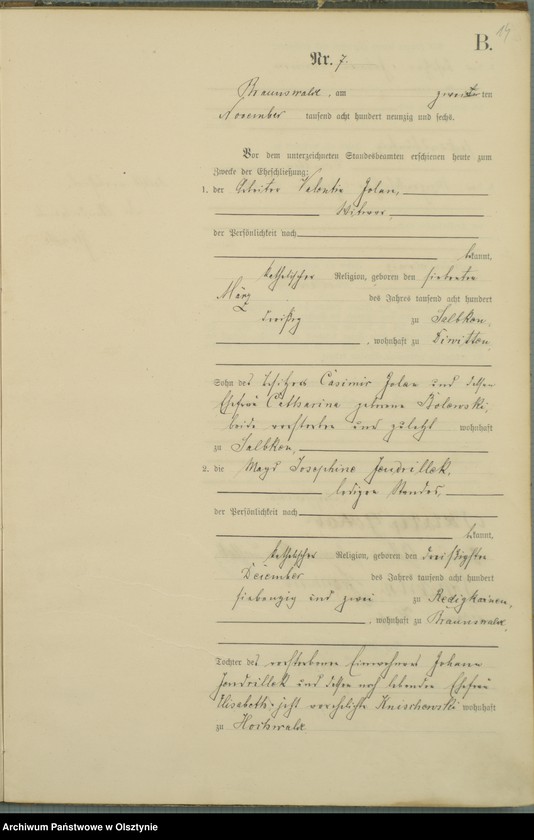 14
B.
Nr. 7.
Braunswald, am zweiten
November tausend acht hundert neunzig und sechs.
Vor dem unterzeichneten Standesbeamten erschienen heute zum
Zwecke der Eheschließung:
1. der Arbeiter Valentin Jolan,
Witwer
der Persönlichkeit nach
bekannt,
katholischer Religion, geboren den siebenten
März des Jahres tausend acht hundert
dreißig zu Salbkon,
, wohnhaft zu Diwitten
Sohn des Besitzers Casimir Jolan und dessen
Ehefrau Catharina geborene
beide verstorben und zuletzt wohnhaft
zu Salbkon,
2. die Magd Josephine Jendrillek,
ledigen Standes,
der Persönlichkeit nach
bekannt,
katholischer Religion, geboren den dreißigsten
Dezember des Jahres tausend acht hundert
siebenzig und zwei zu Redigkainen,
, wohnhaft zu Braunswald,
Tochter des verstorbenen Einwohners Johann
Jendrillek und dessen noch lebenden Ehefrau
Elisabeth jetzt verehelichte wohnhaft
zu Hochwald
Archiwum Państwowe w Olsztynie